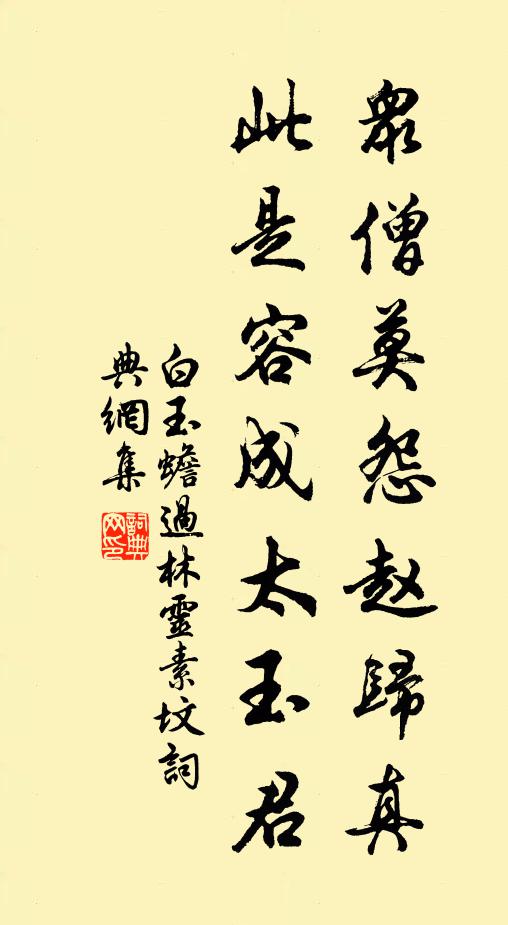 眾僧莫怨赵歸真
此是容成太玉君
白玉蟾過林靈素坟詞
典網集
詞典
网印